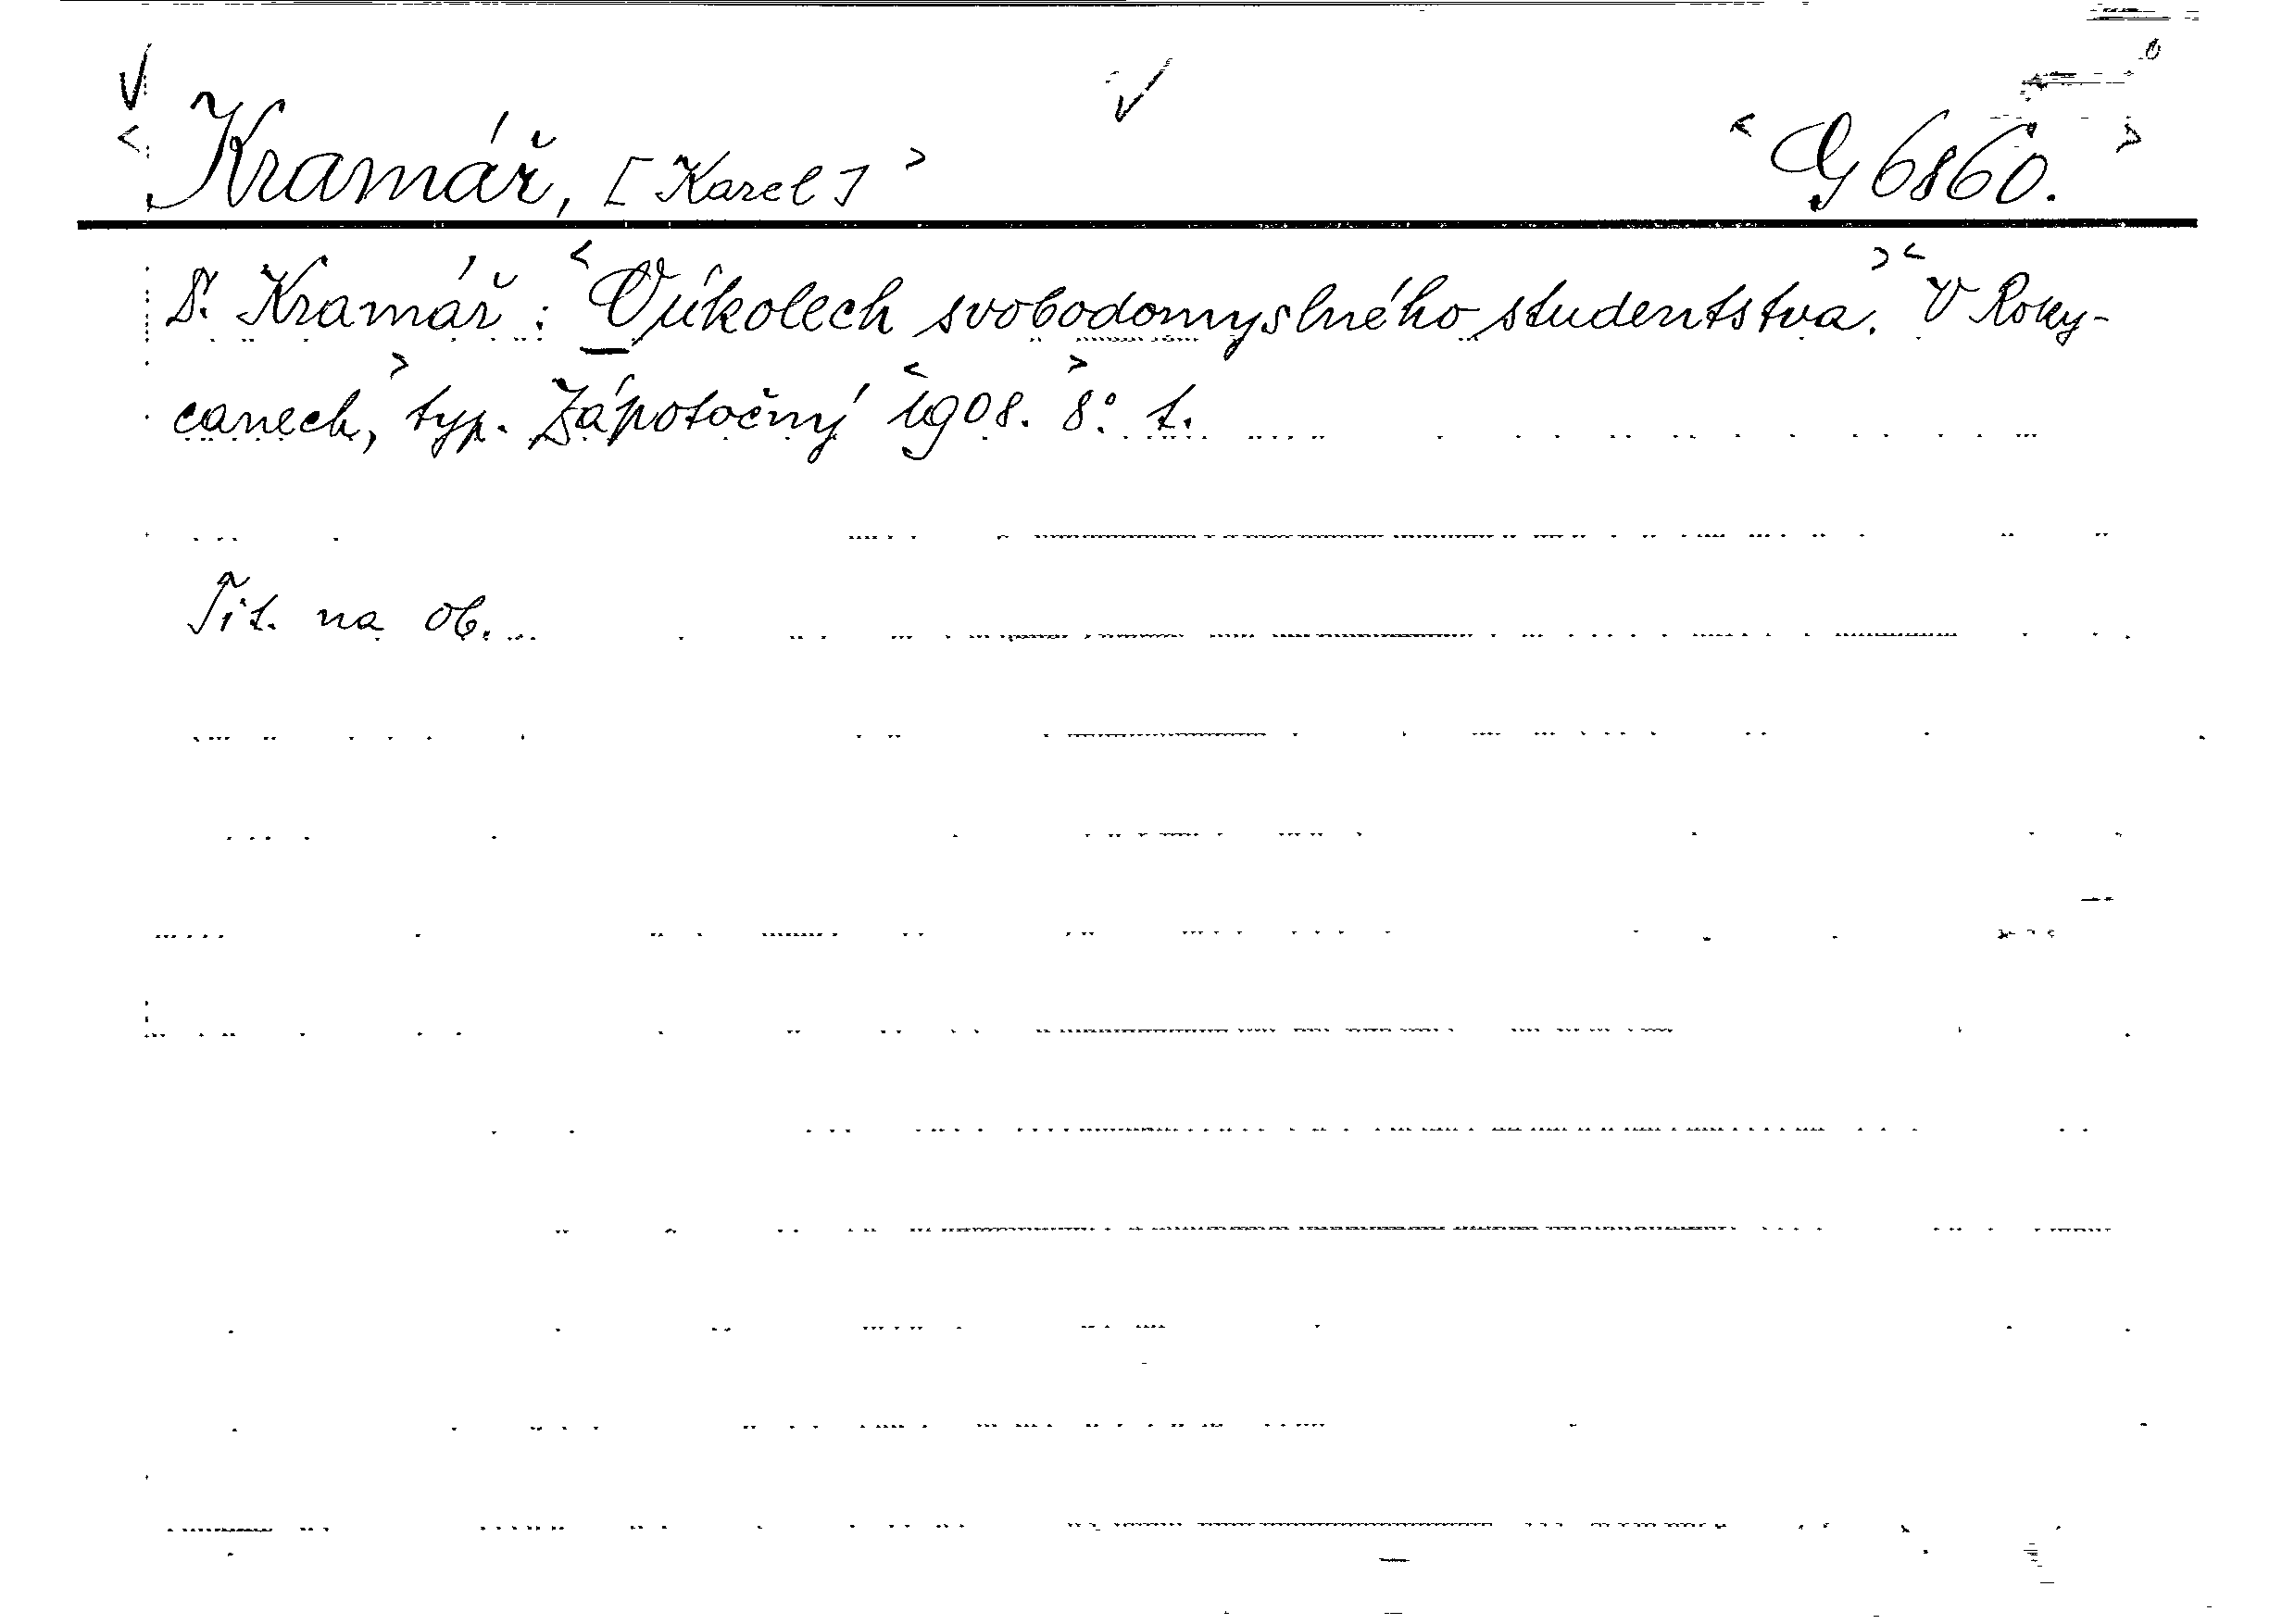 Kramář, [Karel]
G 6860.
Dr. Kramář: O úkolech svobodomyslného studentstva. V Roky-
canech, typ. Zápotočný 1908. 8° t.
Tit. na ob.